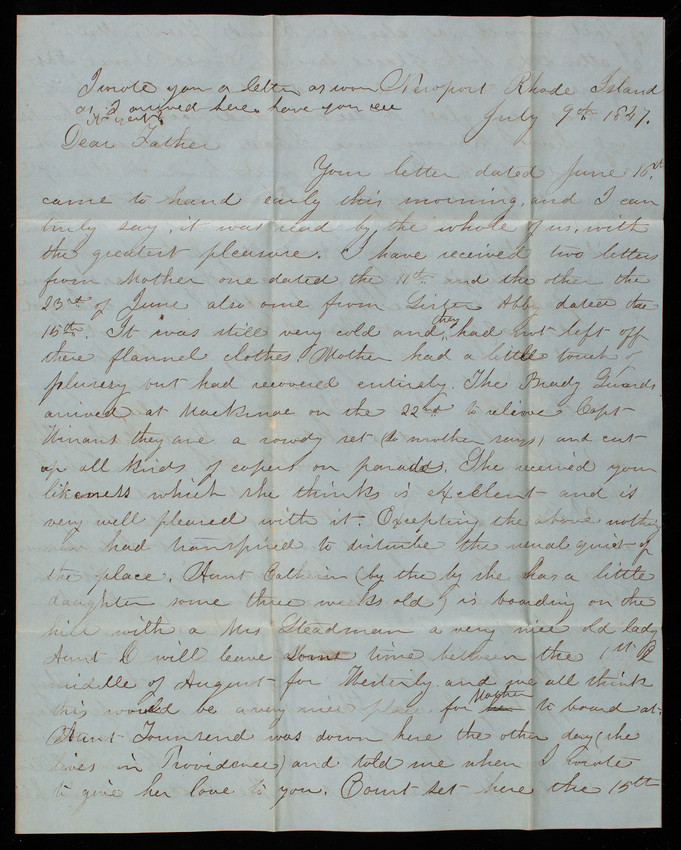 I wrote you a letter as soon Newport Rhode Island
as I arrived here have you
July 9th 1847.
Dear Father
Your letter dated June 16th
came to hand early this morning, and I can
truly say, it was read by the whole of us, with
the greatest pleasure. I have received two letters
from Mother one dated the 11th and the other the
23rd of June also one from Sister Abby dated the
15th. It was still very cold and they had not left off
there flannel clothes. Mother had a little touch of
plurery but had recovered entirely. The Brady Guards
arrived at Mackinac on the 22nd to relieve Capt
Winans they are a rowdy set (so mother says) and cut
up all kinds of capers on parade. She received your
likeness which she thinks is excellent and is
very well pleased with it. Excepting the above nothing
new had transpired to disturbe the usual quiet of
the place. Aunt Catherin (by the by she has a little
daughter some three weeks old) is boading on the
hill with a Mrs Steadman a very nice old lady
Aunt C will leave some time between the 1st &
middle of August for Westerly and we all think
this would be a very nice place for Mother to board at.
Aunt Townsend was down here the other day (she
lives in Providence) and told me when I wrote
to give her love to you. Court set here the 15th